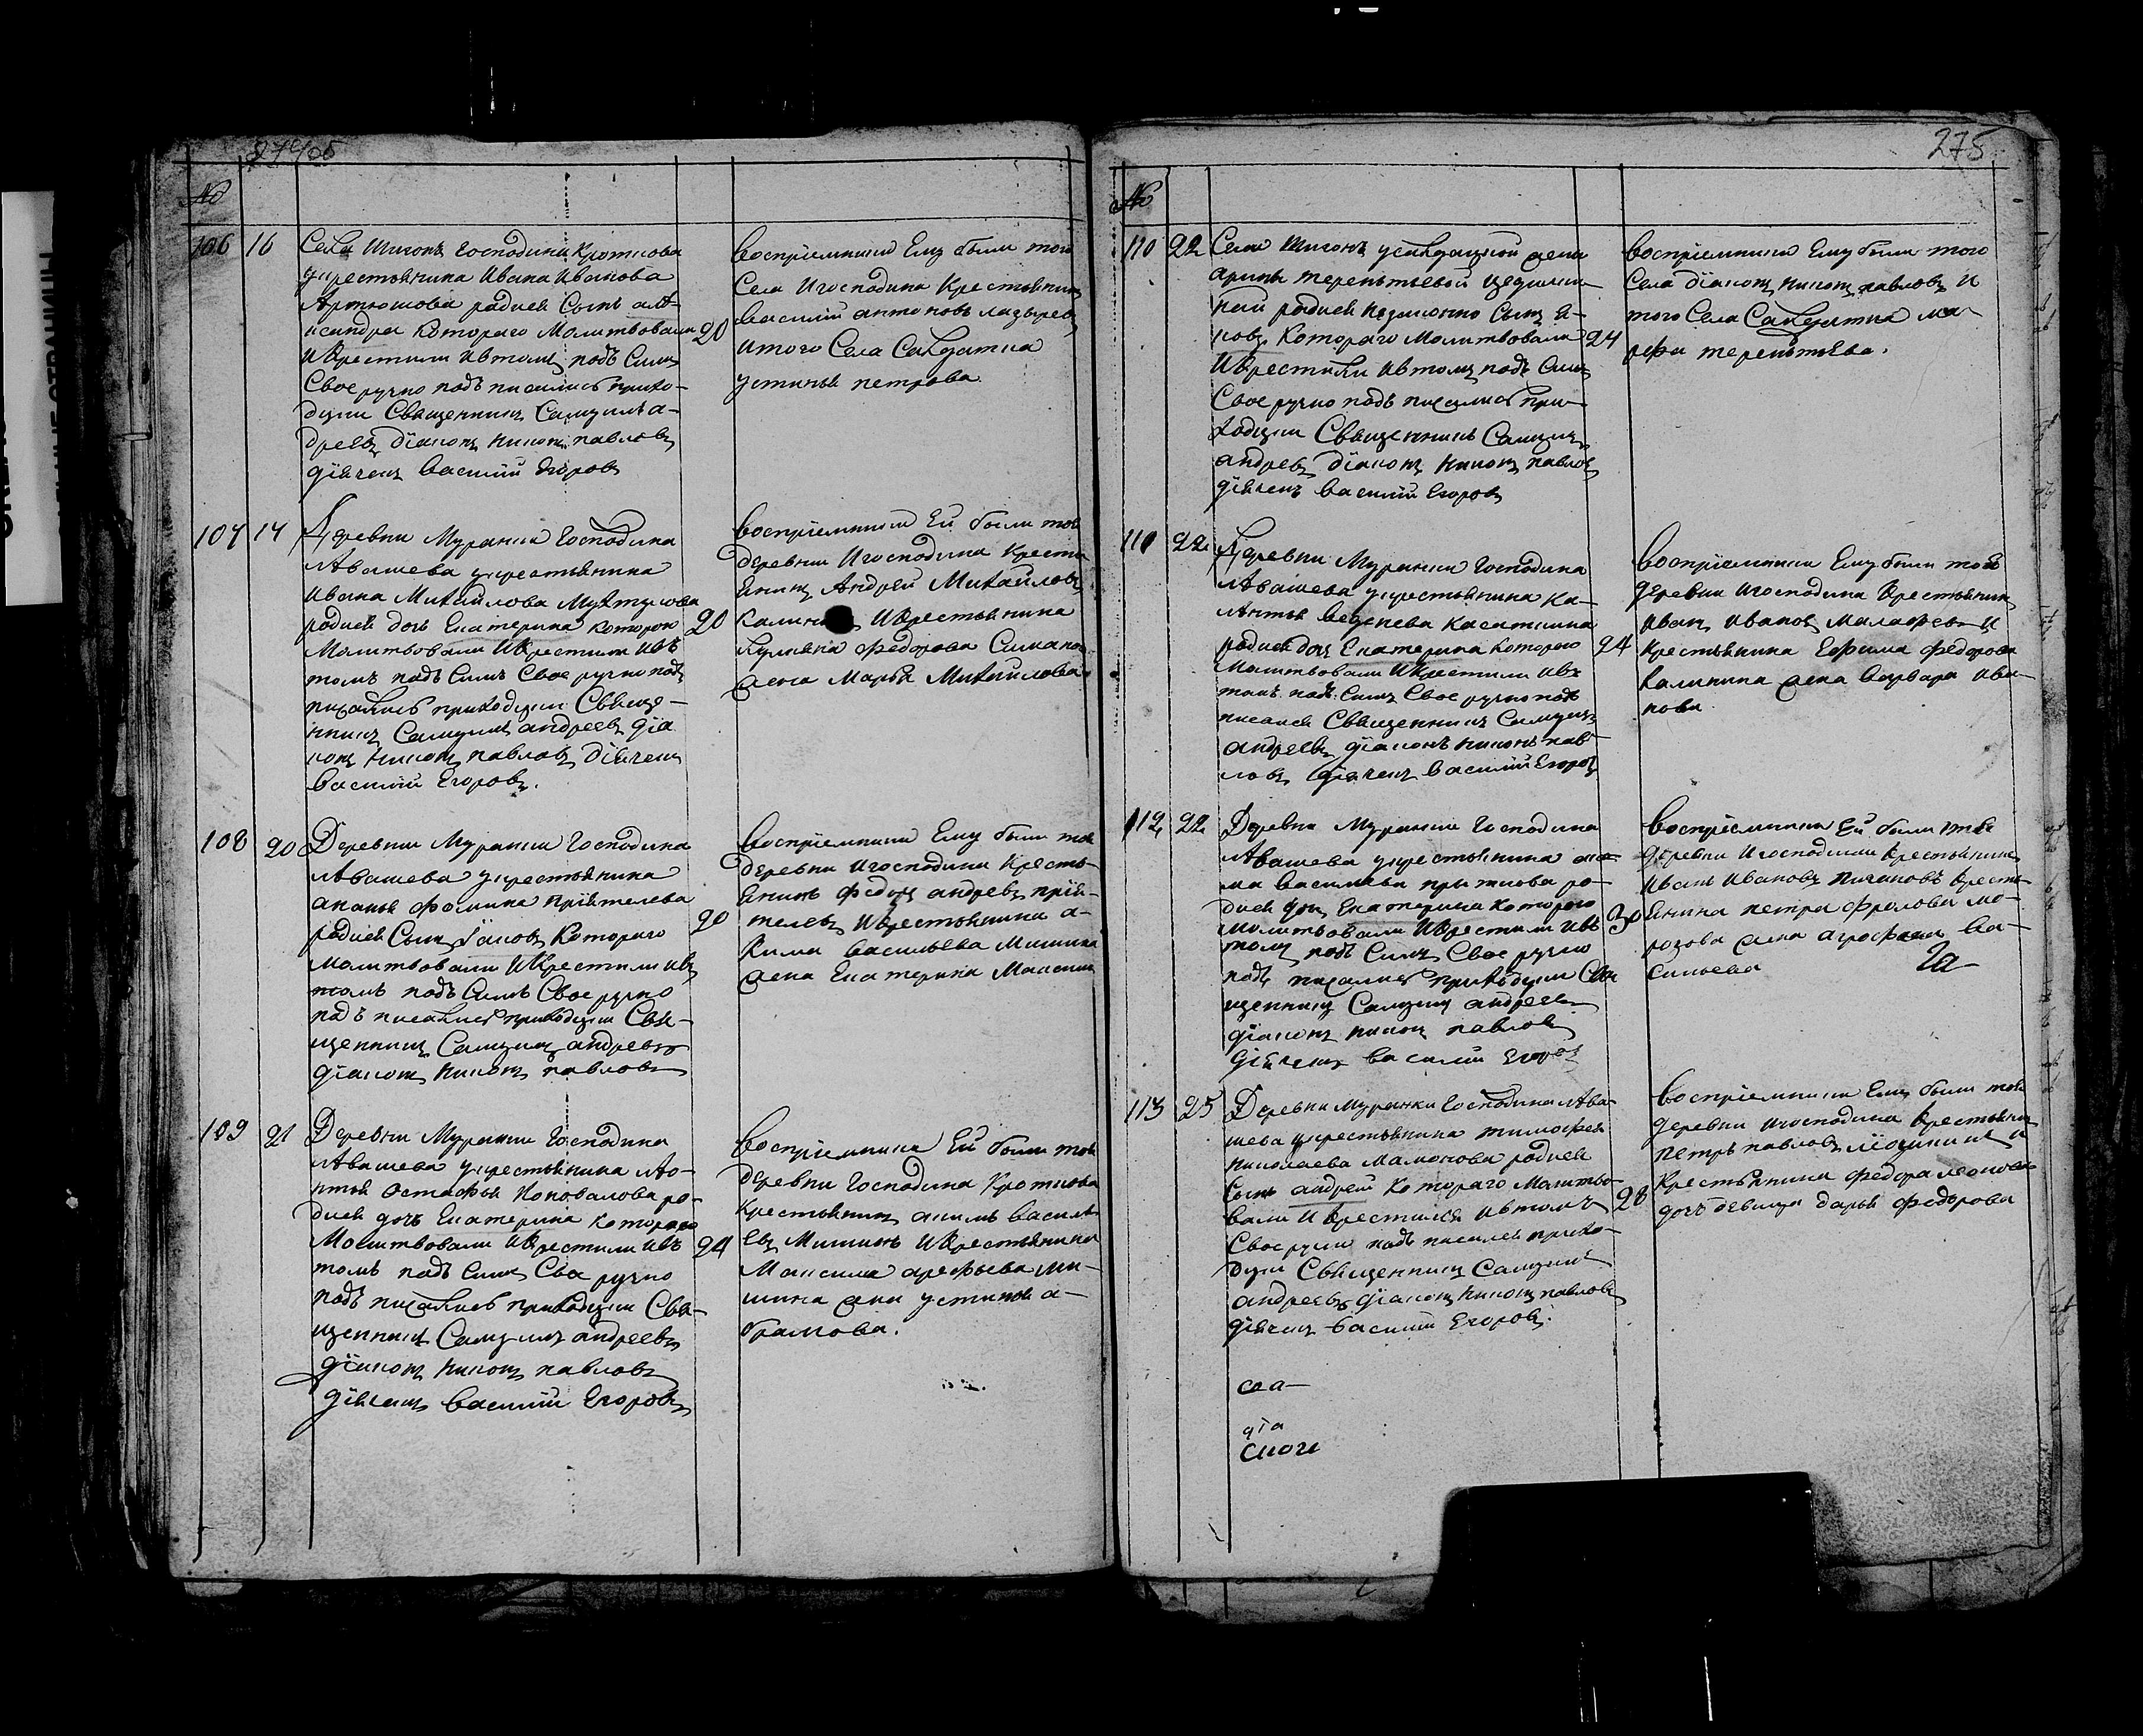 274 об
№
106 16 Села Шигонъ Господина Кроткова
у крестьянина Ивана Иванова
Артюшова родися Сынъ але-
ксандра Котораго Молитвовали 20
И Крестили Ивтомъ подъ Симъ
Своеручно подъ писались прихо-
дции Священникъ Самуилъ а-
дреевъ діаконъ никонъ павловъ
діячекъ Василий Егоровъ
воспріемники Ему были того
Села Игосподина Крестьянинъ
Василий антоновъ лазыревъ
Итого Села Салдатка
устинья петрова
107 17 Деревни Муранки Господина
Авашева укрестьянина
Ивана Михайлова Мухтулова
родися дочь Екатерина которою 20
Молитвовали ИКрестили ивъ
томъ подъ Симъ Своеручно подъ
писались приходции Свяще-
нникъ Самуилъ андреевъ діа
конъ Никонъ павловъ діячекъ
Василий Егоровъ.
воспріемники Ей были тоя
деревни Игосподина Кресть
янинъ Андрей Михайловъ
Калин ИКрестьянина
федорова
жена Марья Михайлова
108 20 Деревни Муранки Господина
Авашева укрестьянина
ананья фомина пріятелева
родися Сынъ Іаковъ Котораго 20
молитвовали ИКрестили ивъ
томъ подъ Симъ Своеручно
подъ писались приходции Свя-
щенникъ Самуилъ андреевъ
діаконъ Никонъ павловъ
воспріемники Ему были тоя
деревни Игосподина Кресть-
янинъ Федоръ андреевъ прія-
телевъ ИКрестьянина а-
кима васильева Мишина
жена Екатерина Максим
109 21 Деревни Муранки Господина
Авашева укрестьянина
Остафья Коновалова ро-
дися дочь Екатерина которою
Молитвовали ИКрестили ивъ 24
томъ подъ Симъ Сво ручно
подъ писались приходции Свя-
щенникъ Самуилъ андреевъ
діаконъ никонъ павловъ
діячекъ Василий Егоровъ
воспріемники Ей были тоя
деревни Господина Кроткова
Крестьянинъ акимъ василь
евъ Мишинъ ИКрестьянина
Максима арефьева ми-
шина жена устинья а-
брамова.
275
№
110 22 Села Шигонъ усалдацкой жены
арины терентьевой
родися незаконно Сынъ
Котораго Молитвовали 24
ИКрестили Ивтомъ подъ Симъ
Своеручно подъ писались при-
ходции Священникъ Самуилъ
андреевъ діаконъ никонъ павловъ
діячекъ василий Егоровъ
воспріемники Ему были того
Села діаконъ никонъ павловъ И
того Села Салдатка ма-
рфа терентьева.
111 22 Деревни Муранки Господина
Авашева укрестьянина Ка-
Касаткина
родися дочь Екатерина которою 24
молитвовали ИКрестили ивъ
томъ подъ Симъ Своеручно подъ
писался Священникъ Самуилъ
андреевъ діаконъ никонъ пав-
ловъ діячекъ василий Егоровъ
воспріемники Ему были тоя
деревни Игосподина Крестьянинъ
Иванъ Ивановъ Малафеевъ И
Крестьянина Ефима федорова
Калинина жена варвара ива-
нова
112 22 Деревни Муранки Господина
Авашева укрестьянина
ма васильева прыткова ро-
дися дочь Екатерина которою
молитвовали ИКрестили ивъ 30
томъ подъ Симъ Своеручно
подъ писались приходции Свя
щенникъ Самуилъ андреевъ
діаконъ никонъ павловъ
діячекъ василий Егоровъ
воспріемники Ей были тоя
деревни Игосподина Крестьянинъ
Иванъ Ивановъ Кресть-
янина петра фролова мо-
розова жена агрофена ва-
сильева
113 25 Деревни Муранки Господина Ава-
шева укрестьянина тимофея
николаева Мамонова родися
Сынъ андрей Котораго Молитво-
вали ИКрестился Ивтомъ 28
Своеручно подъ писался прихо-
дции Священникъ Самуилъ
андреевъ діаконъ Никонъ павловъ
діячекъ Василий Егоровъ.
воспріемники Ему были тоя
деревни Игосподина Крестьянинъ
петръ павловъ И
Крестьянина федора леонова
дочь девица дарья федорова
діа